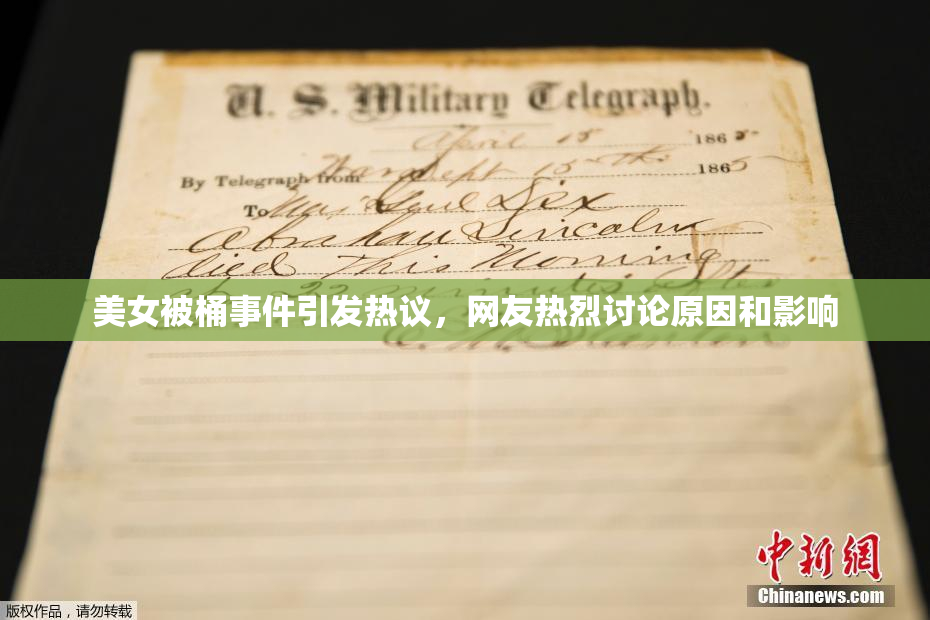 U. S. Military Telegraph.
April 15 1865
By Telegraph from War Dept 15th 1865
To Maj Genl Dix
Abraham Lincoln
died This Morning
at 22 minutes after
美女被桶事件引发热议，网友热烈讨论原因和影响
E. M. Stanton
中新网
Chinanews.com
版权作品，请勿转载